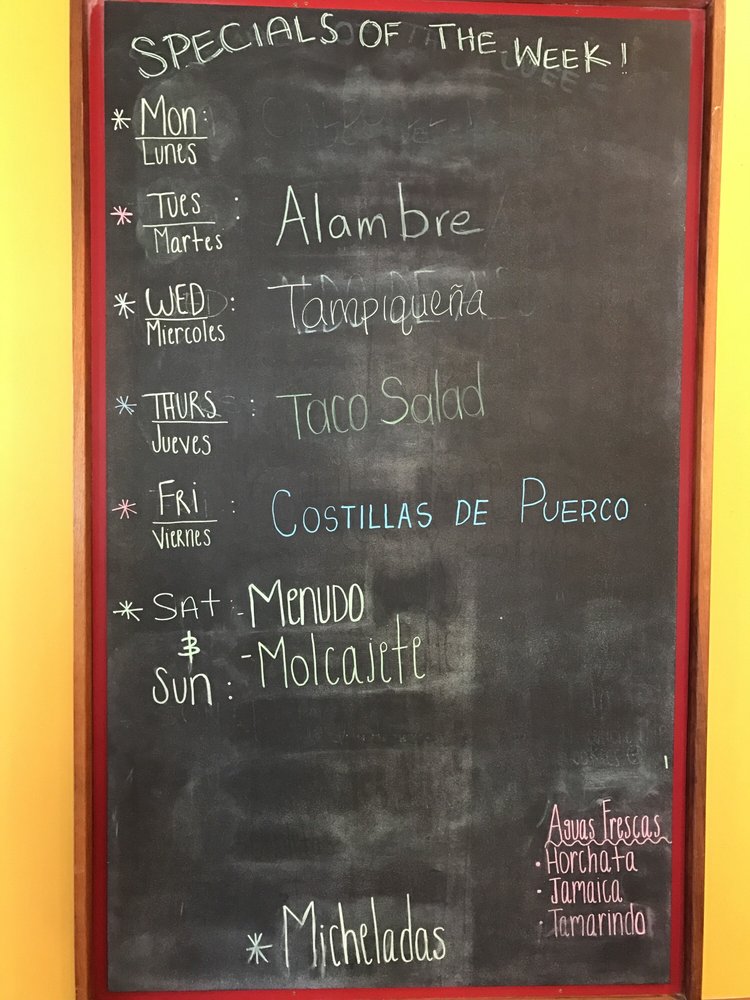 SPECIALS OF THE WEEK!
* Mon:
Lunes
* TUES : Alambre
Martes
* WED : Tampiqueña
Miercoles
* THURS : Taco Salad
Jueves
* FRI : COSTILLAS DE PUERCO
Viernes
* SAt :- MENUDO
&
Sun : - Molcajete
Aguas Frescas
• Horchata
• Jamaica
• Tamarindo
* Micheladas